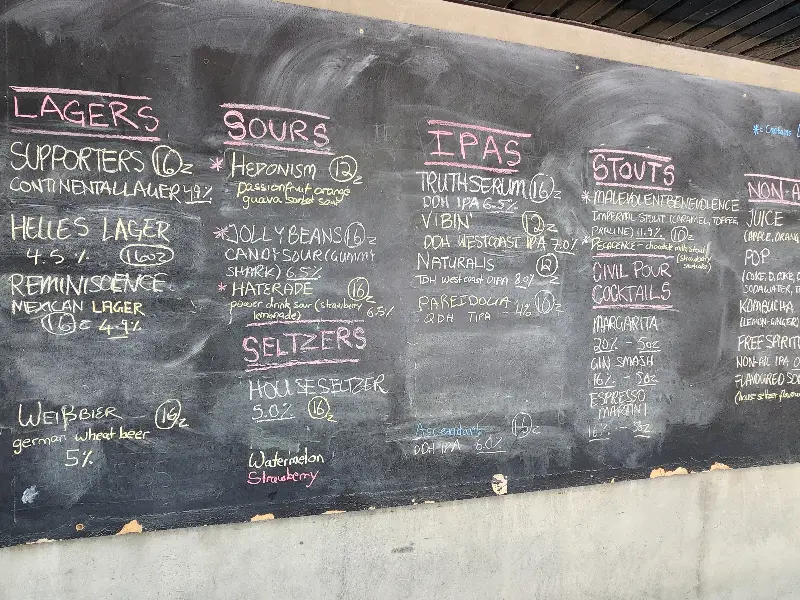 LAGERS
SUPPORTERS 16oz
CONTINENTAL LAGER 4.9%
HELLES LAGER
4.5% 16oz
REMINISCENCE
MEXICAN LAGER
16oz 4.9%
WEIßBIER 16oz
german wheat beer
5%
SOURS
* HEDONISM 12oz
passionfruit orange
guava sorbet sour
* JOLLYBEANS 16oz
CANDY SOUR (GUMMY
SHARK) 6.5%
* HATERADE 16oz
power drink sour (strawberry
lemonade) 6.5%
SELTZERS
HOUSE SELTZER
5.0% 16oz
Watermelon
Strawberry
IPAS
TRUTH SERUM 16oz
DDH IPA 6.5%
VIBIN' 12oz
DDH WESTCOAST IPA 7.0%
NATURALIS 12oz
TDH West Coast DIPA 8.0%
PAREIDOLIA 10oz
QDH TIPA
Ascendant 12oz
DDH IPA 6.0%
STOUTS
* MALEVOLENT BENEVOLENCE
IMPERIAL STOUT (CARAMEL, TOFFEE,
PRALINE) 11.9% 10oz
chocolate milk stout
(strawberry
CIVIL POUR
COCKTAILS
MARGARITA
20% - 5oz
GIN SMASH
16% - 5oz
ESPRESSO
MARTINI
16% - 5oz
* = Contains
NON-A
JUICE
(APPLE, ORANG
POP
(COKE, D.COKE,
SODAWATER, T
KOMBUCHA
(LEMON-GINGER)
FREE SPIRIT
NON-ALC IPA
FLAVOURED SO
(house seltzer flavou